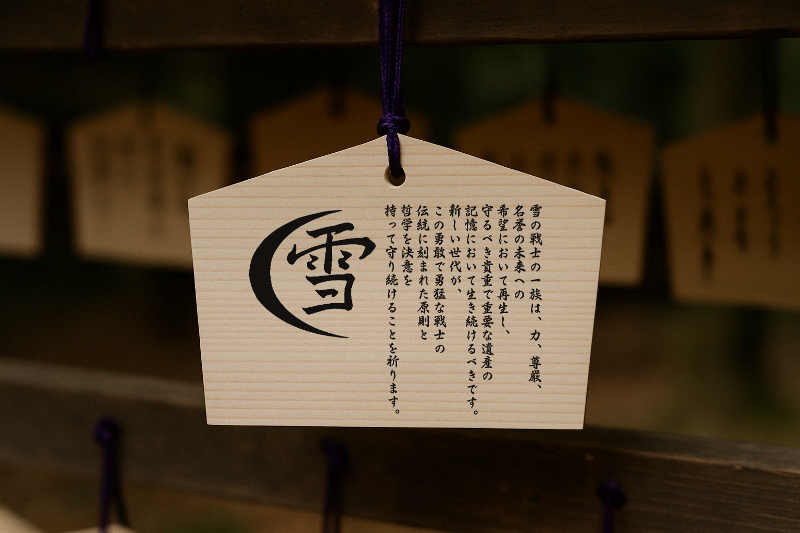 雪の戦士の一族は、力、尊厳、
名誉の未来への
希望において再生し、
守るべき貴重で重要な遺産の
記憶において生き続けるべきです。
新しい世代が、
この勇敢で勇猛な戦士の
伝統に刻まれた原則と
哲学を決意を
持って守り続けることを祈ります。
雪